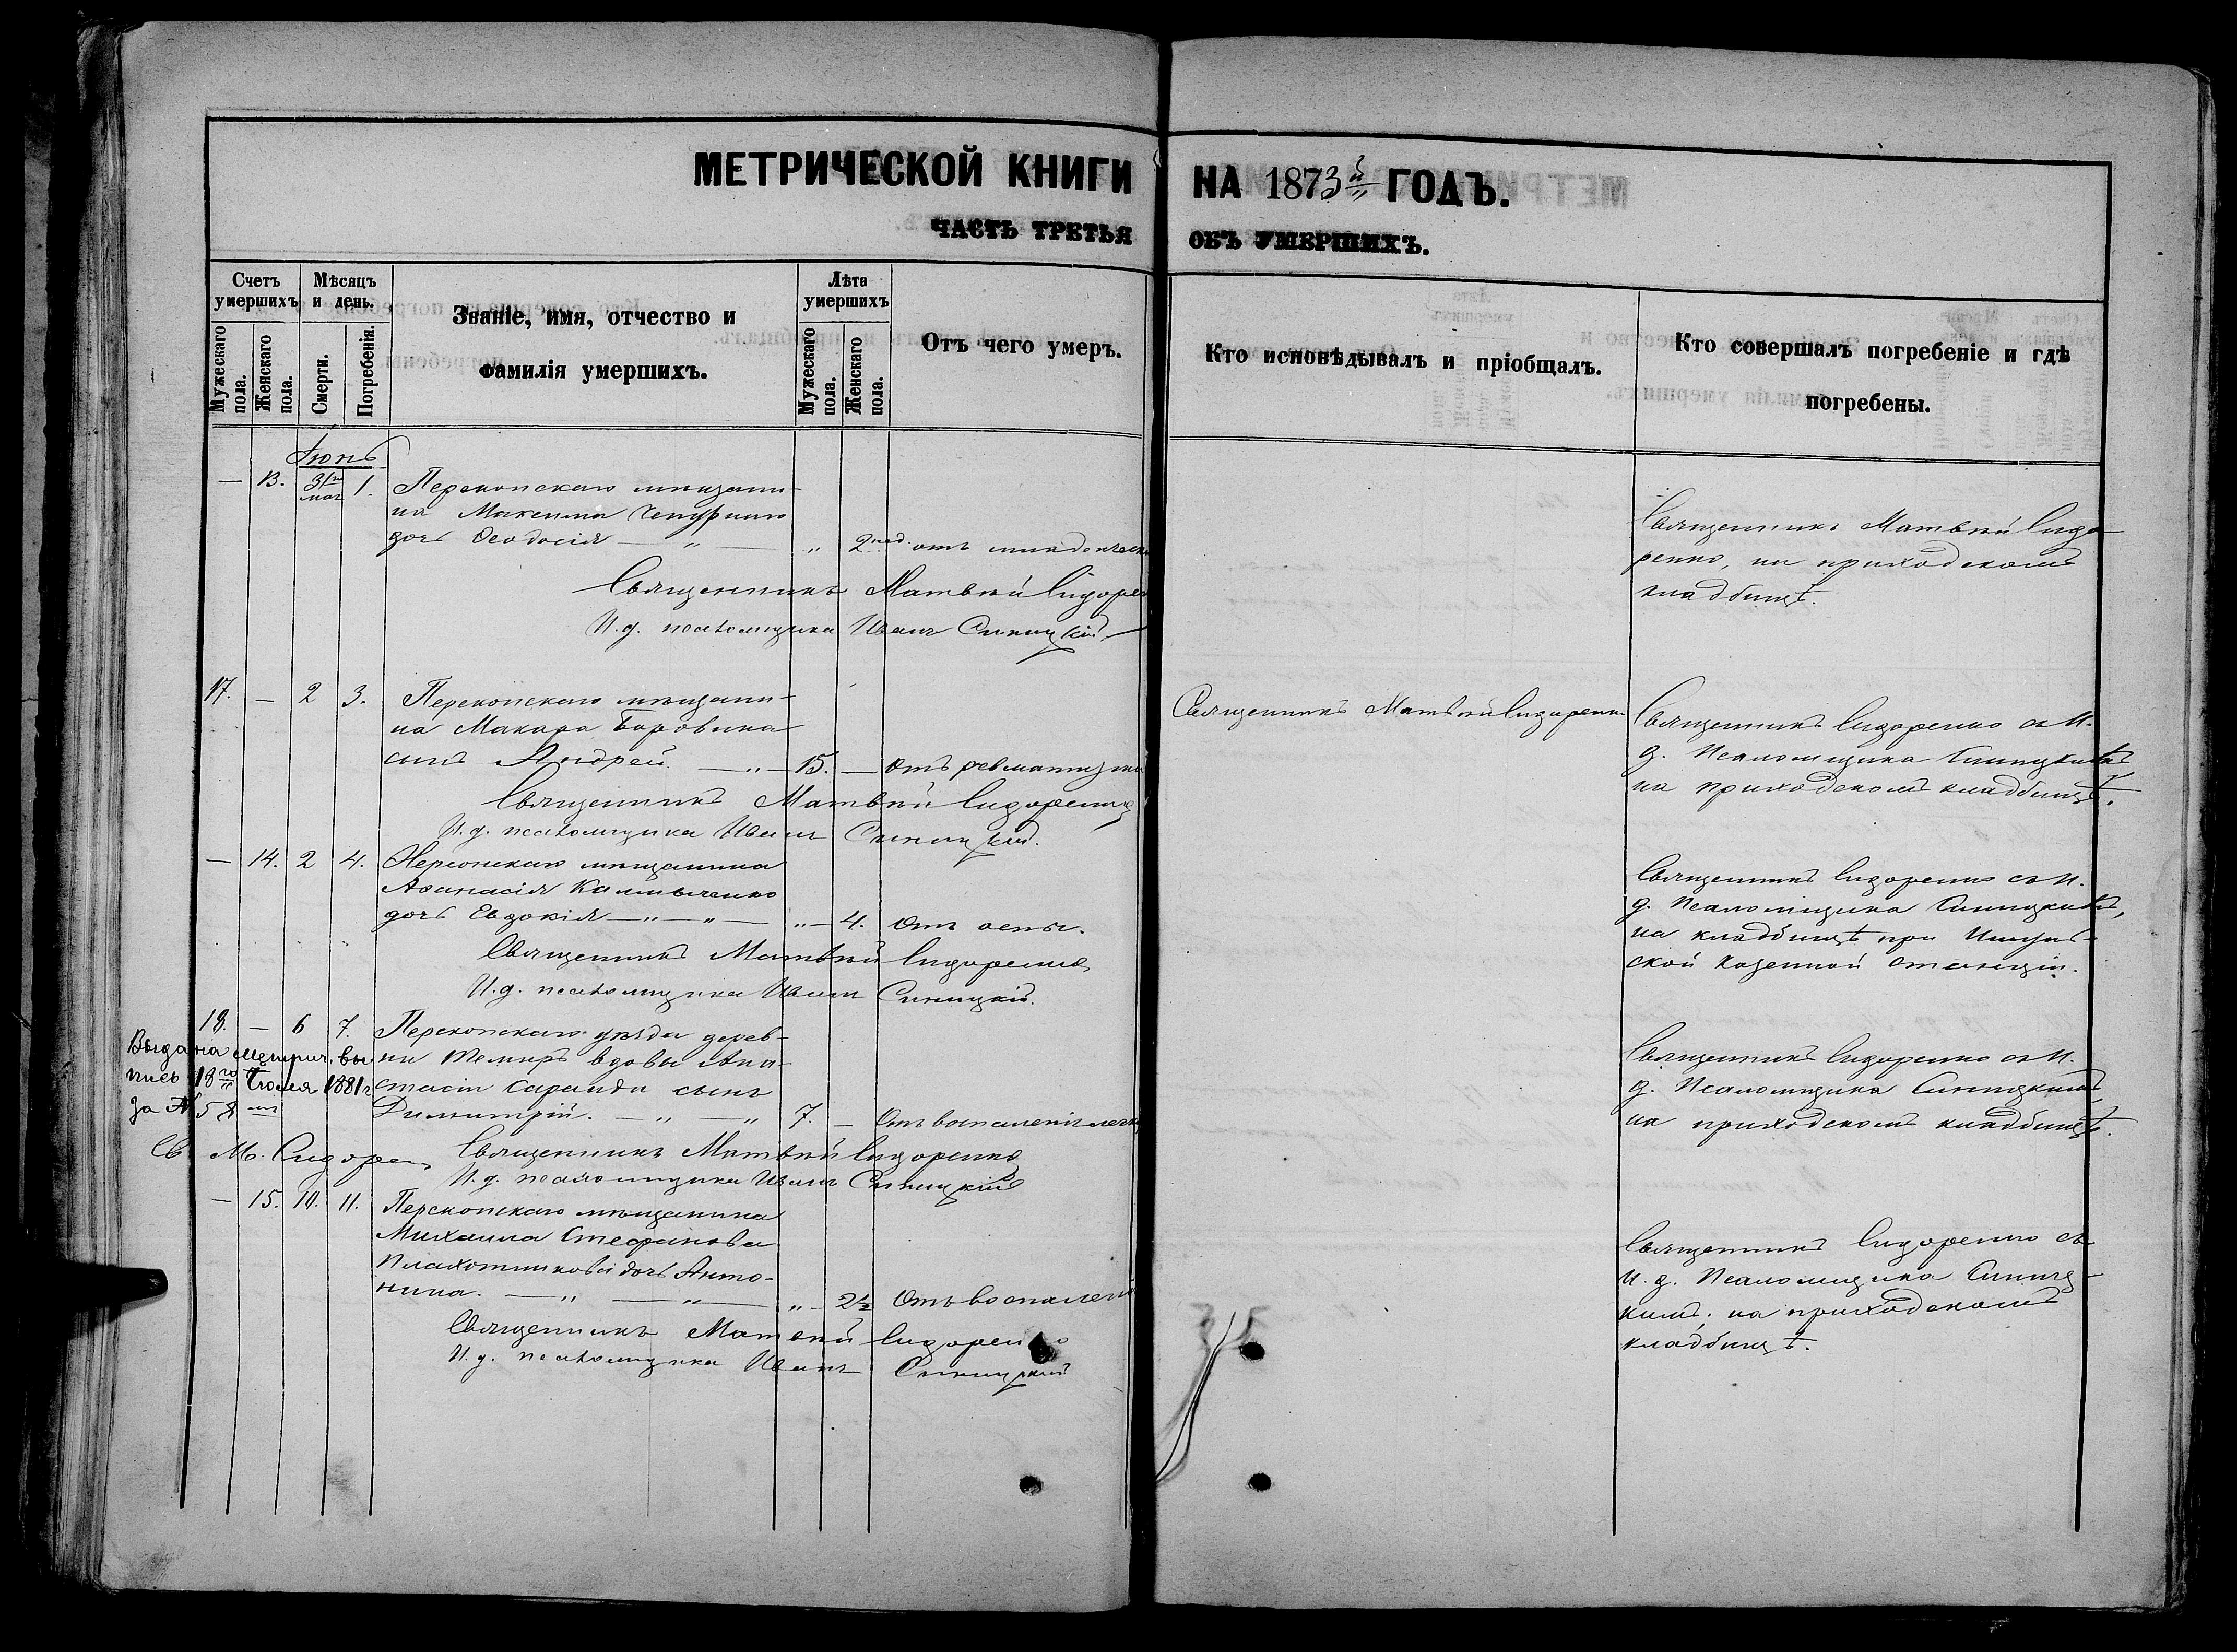 МЕТРИЧЕСКОЙ КНИГИ НА 1873й ГОДЪ.
ЧАСТЬ ТРЕТЬЯ ОБЪ УМЕРШИХЪ.
Счетъ умершихъ
Мужескаго пола.
Женскаго пола.
Мѣсяцъ и день.
Смерти.
Погребенія.
Званіе, имя, отчество и
фамилія умершихъ.
Лѣта умершихъ
Мужескаго пола.
Женскаго пола.
Отъ чего умеръ.
Кто исповѣдывалъ и пріобщалъ.
Кто совершалъ погребеніе и гдѣ
погребены.
Іюнь
— 13. 31го мая 1. Перекопскаго мѣщани-
на Максима
дочь Ѳеодосія — " — " 2 нед. отъ
Священникъ Матвѣй Сидорен
И. д. псаломщика Иванъ Синицкій
Священникъ Матвѣй Сидо-
ренко, на приходскомъ
кладбищѣ.
17. — 2 3. Перекопскаго мѣщани-
на Макара Боровика
сынъ Андрей. — " — 15. — Отъ ревматизма
Священникъ Матвѣй Сидоренко
И. д. псаломщика Иванъ Синицкій.
Священникъ Матвѣй Сидоренко
Священникъ Сидоренко съ И.
д. Псаломщика Синицкимъ,
на приходскомъ кладбищѣ.
— 14. 2 4. Херсонскаго мѣщанина
Аѳанасія
дочь Евдокія — " — " — " — 4. Отъ оспы.
Священникъ Матвѣй Сидоренко
И. д. псаломщика Иванъ Синицкій.
Священникъ Сидоренко съ И.
д. Псаломщика Синицкимъ,
на кладбищѣ при
ской казенной станціи.
18. — 6 7. Перекопскаго уѣзда дерев-
ни Темиръ вдовы Ана-
стасіи сынъ
Димитрій. — " — " 7. — Отъ воспаленія легк
Священникъ Матвѣй Сидоренко
И. д. псаломщика Иванъ Синицкій
Выдана метрич. вы-
пись 18го Іюля 1881 г
за № 58мъ
Св М. Сидорен
Священникъ Сидоренко съ И.
д. Псаломщика Синицкимъ,
на приходскомъ кладбищѣ.
— 15. 10. 11. Перекопскаго мѣщанина
Михаила Стефанова
Плахотникова дочь Анто-
нина. — " — " — " — 2½ Отъ воспален
Священникъ Матвѣй Сидоренко
И. д. псаломщика Иванъ Синицкій
Священникъ Сидоренко съ
И. д. Псаломщика Синиц-
кимъ, на приходскомъ
кладбищѣ.
35